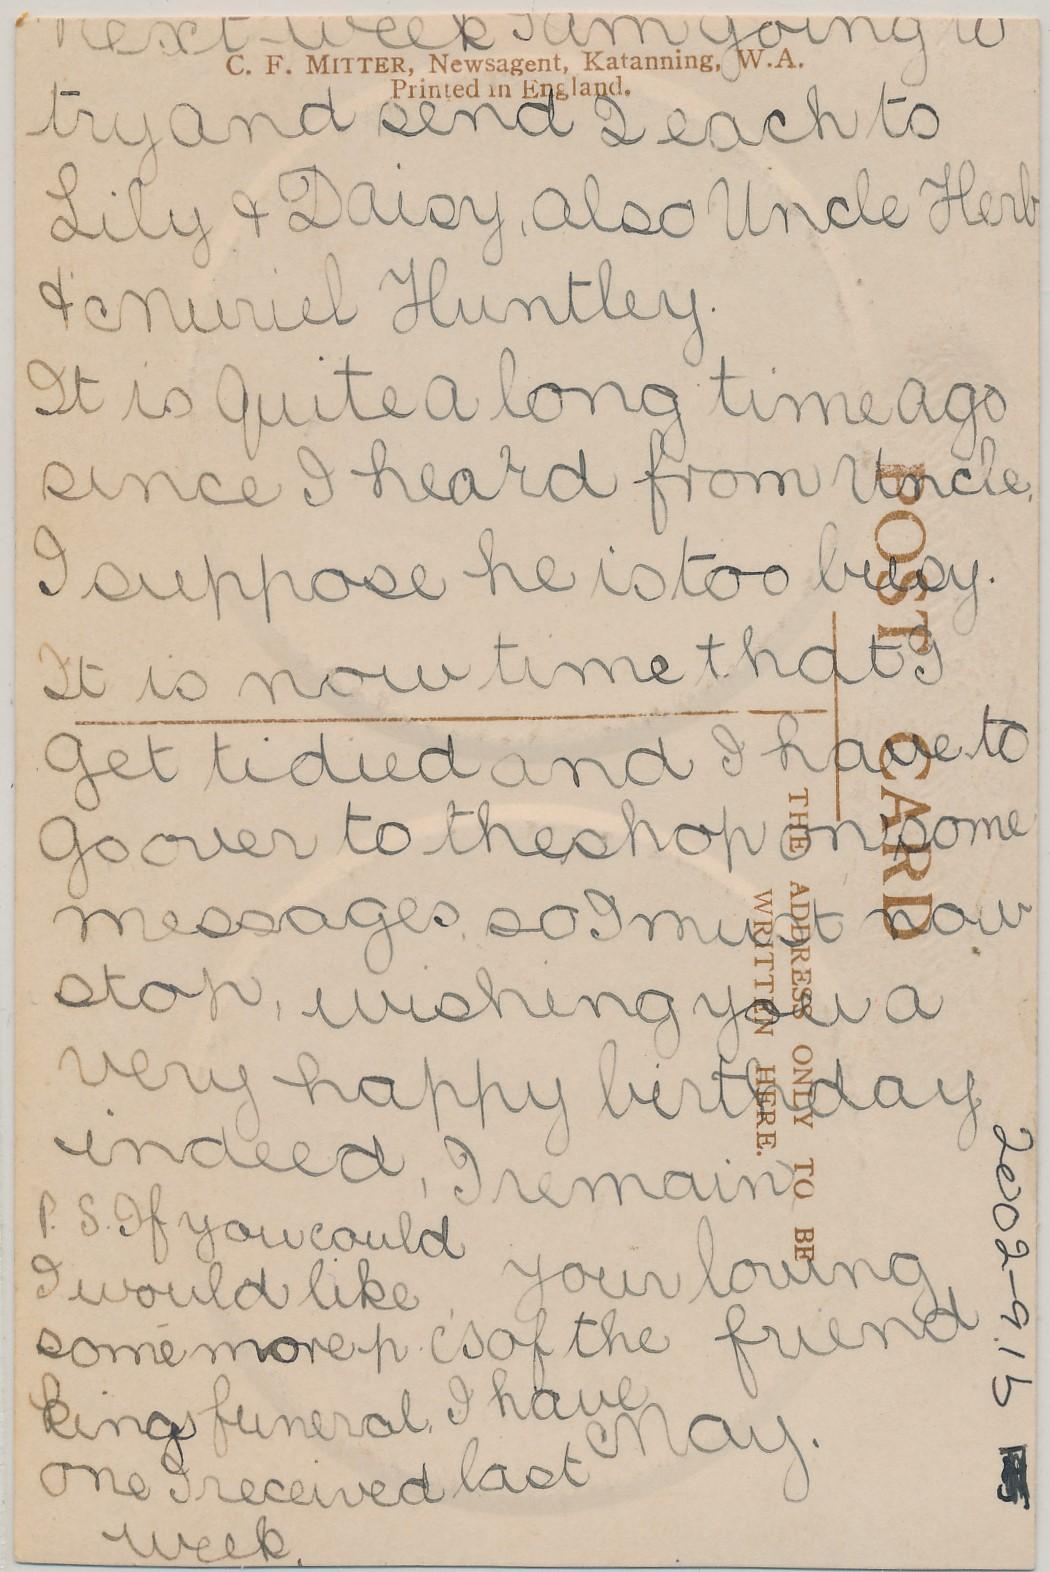 next week I am going to
C. F. MITTER, Newsagent, Katanning, W.A.
Printed in England.
try and send 2 each to
Lily & Daisy, also Uncle Herb
& Muriel Huntley.
It is quite a long time ago
since I heard from Uncle.
I suppose he is too busy.
It is now time that I
get tidied and I have to
go over to the shop on some
messages, so I must now
stop, wishing you a
very happy birthday
indeed, I remain
your loving
friend
May.
P. S. If you could
I would like
some more p.c's of the
kings funeral. I have
one I received last
week.
POST CARD
THE ADDRESS ONLY TO BE
WRITTEN HERE.
2002-9.15